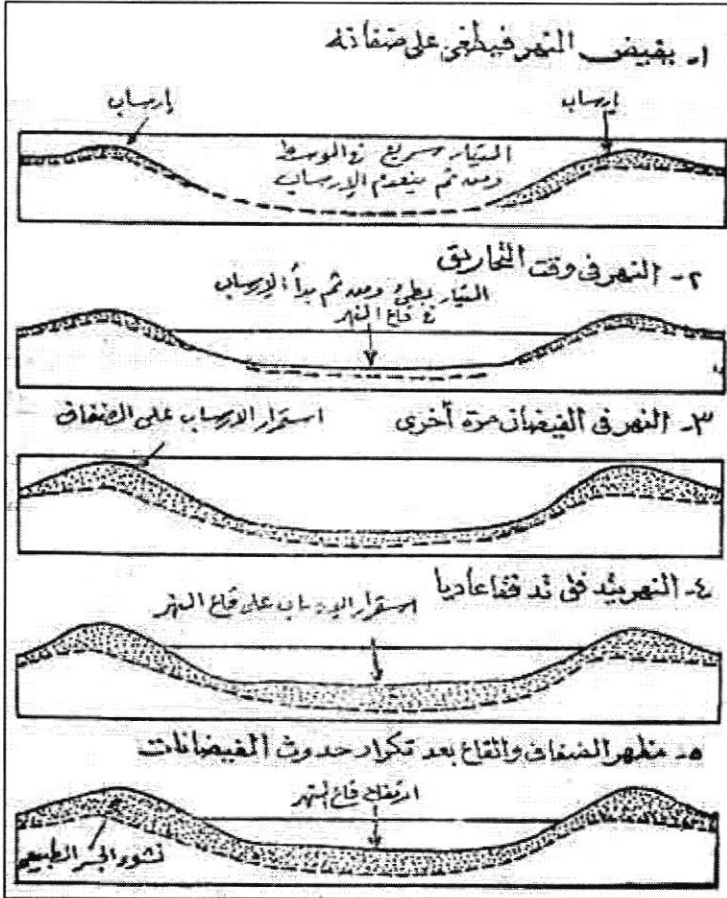 ١- يفيض النهر فيطغى على ضفافه
إرساب
إرساب
التيار سريع في الوسط
ومن ثم ينعدم الإرساب
٢- النهر في وقت التحاريق
التيار بطئ ومن ثم بدأ الإرساب
في قاع النهر
٣- النهر في الفيضان مرة أخرى
استمرار الارساب على الضفاف
٤- النهر يتدفق تدفقا عاديا
استمرار الارساب على قاع النهر
٥- مظهر الضفاف والقاع بعد تكرار حدوث الفيضانات
ارتفاع قاع النهر
نشوء الجسر الطبيعى